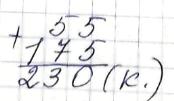 + 55
175
230 (к.)